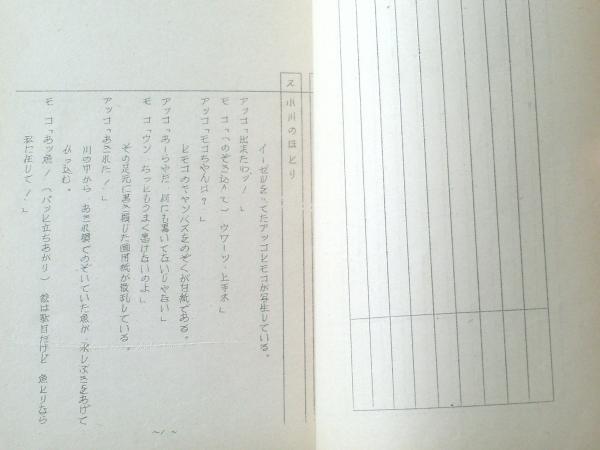 2 小川のほとり
イーゼルを立てたアッコとモコが写生している。
アッコ「出来たわッ!」
モコ「(のぞき込んで)ウワーツ、上手ネ」
アッコ「モコちゃんは?」
とモコのキャンバスをのぞくが白紙である。
アッコ「あーらやだ、何にも書いてないじゃない」
モコ「ウン、ちっともうまく書けないのよ」
その足元に書き損じた画用紙が散乱している。
アッコ「あきれた!」
川の中から、あきれ顔でのぞいていた魚が、水しぶきをあげて
もぐり込む。
モコ「あッ魚!(パッと立ちあがり) 絵は駄目だけど 魚とりなら
私に任して!」
〜1〜